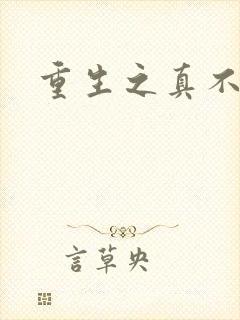 重生之真不
言草央